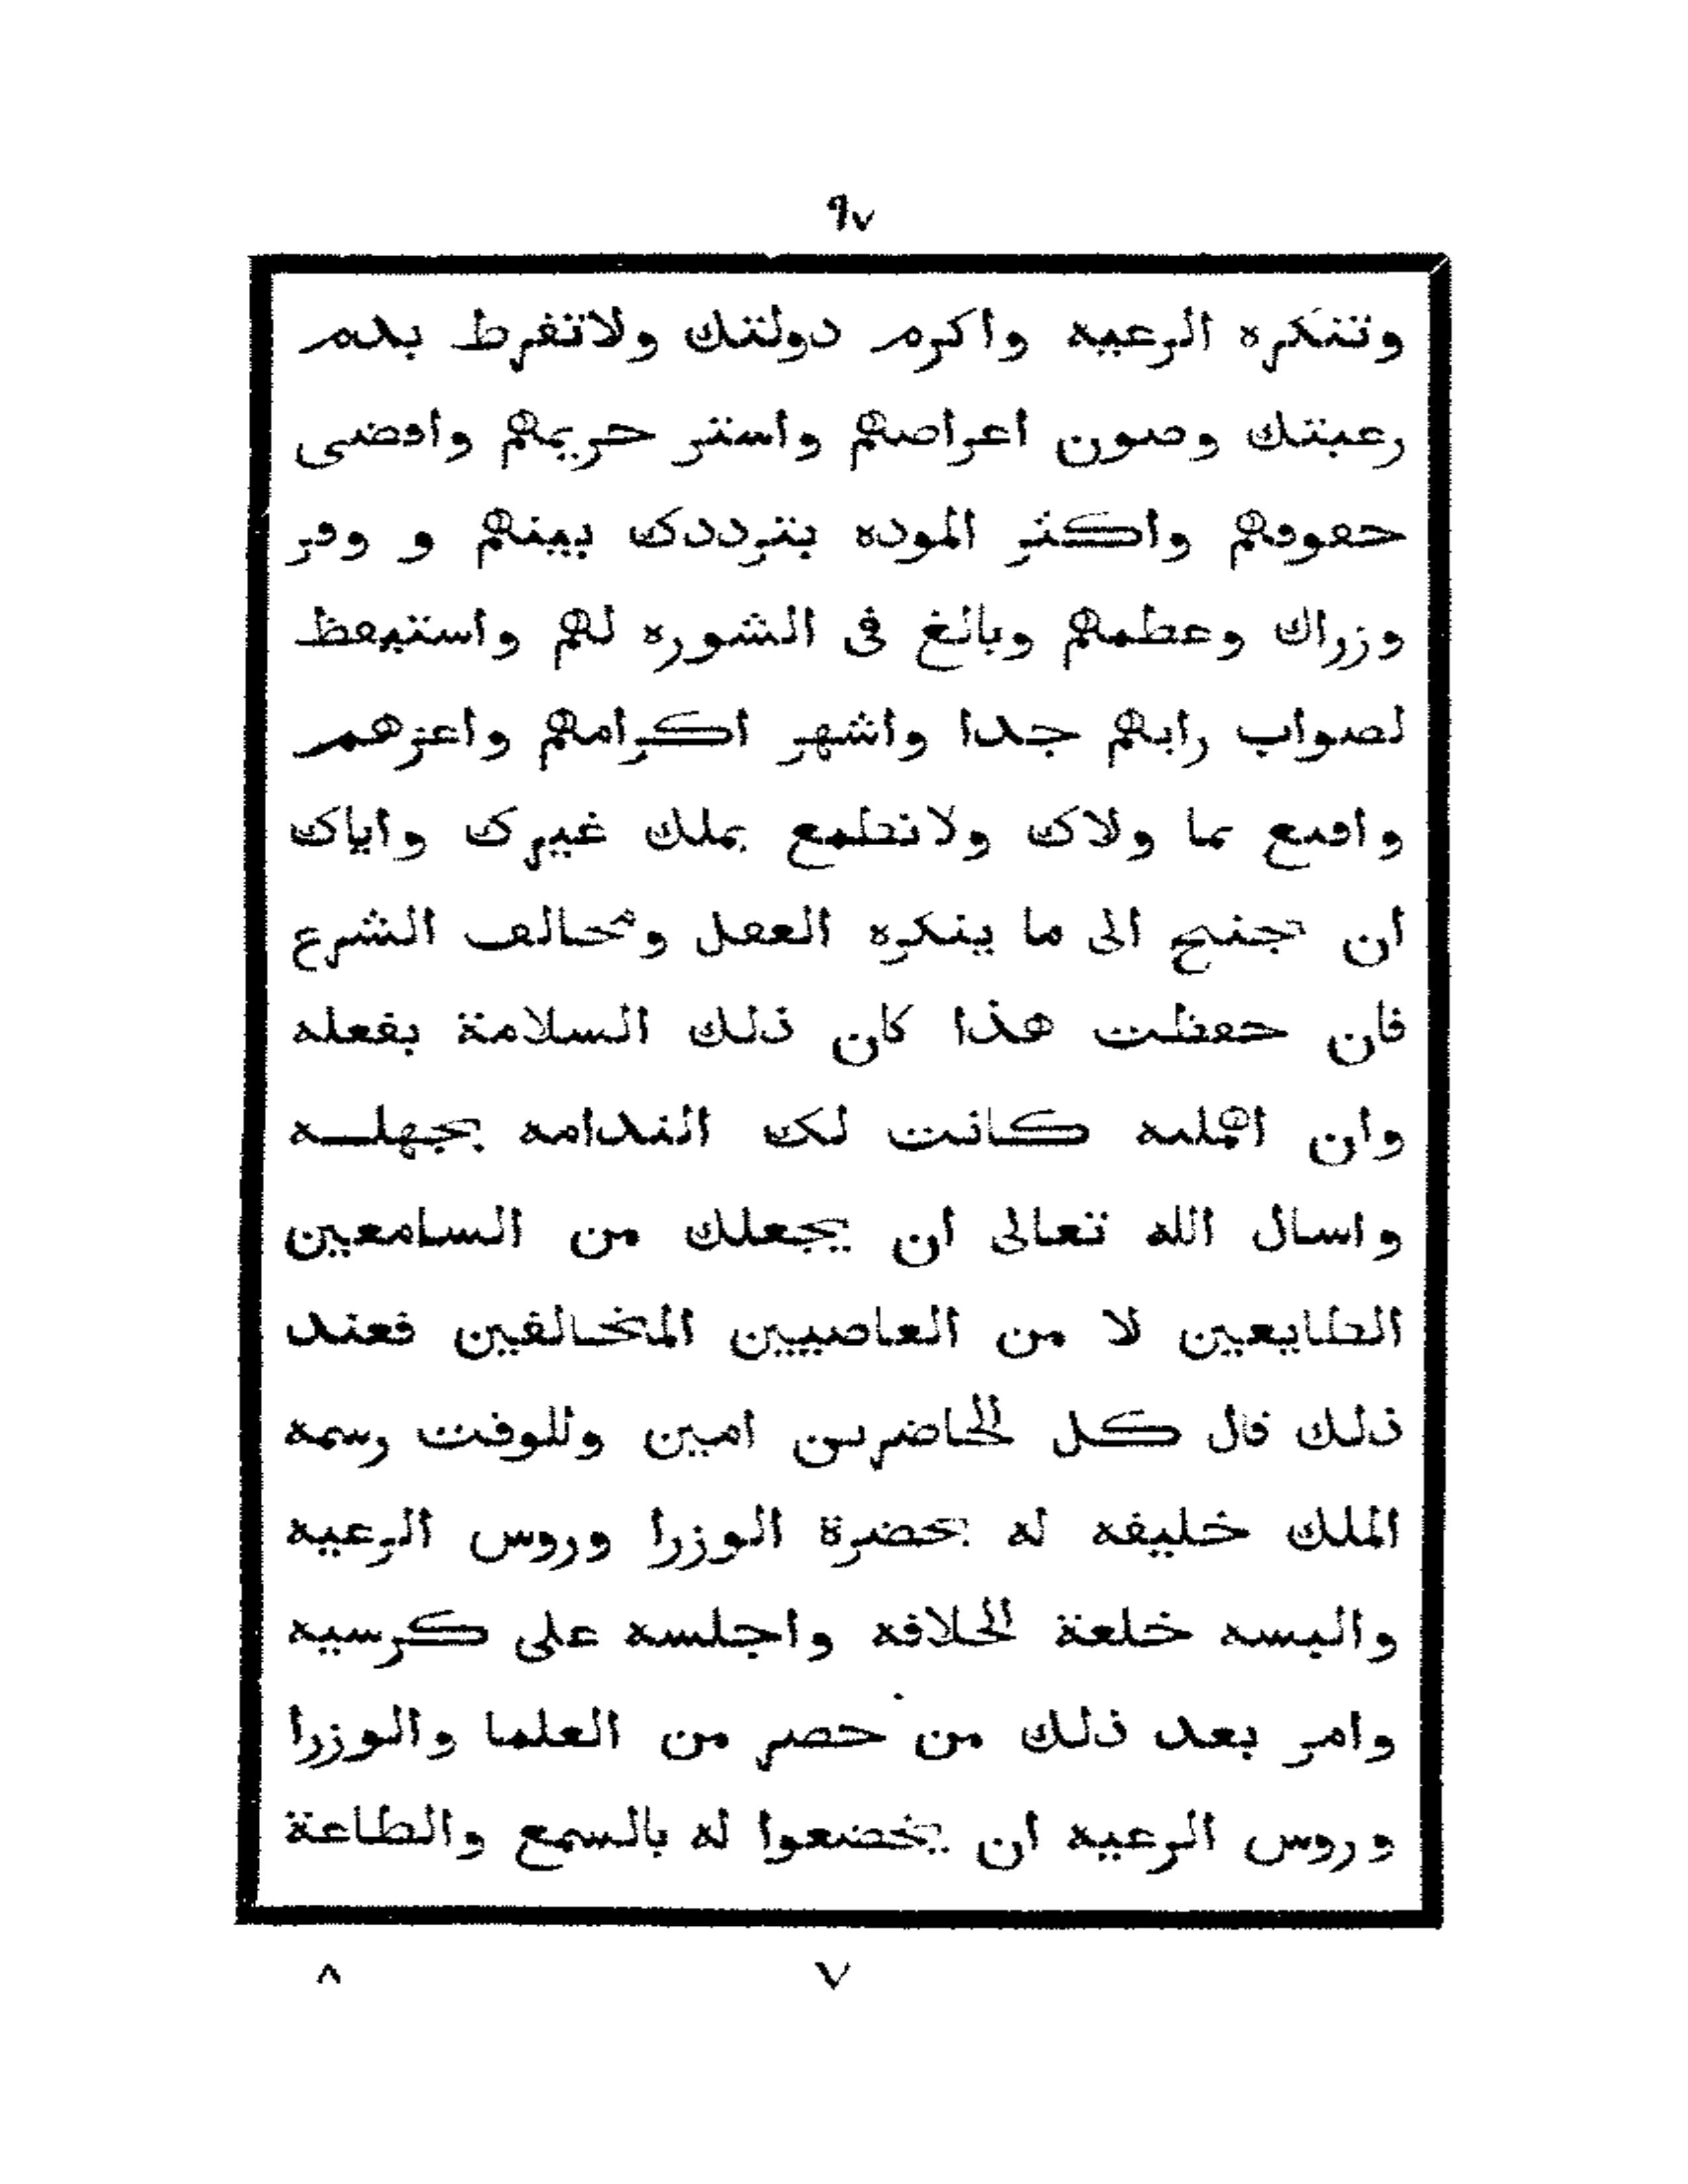 ٩٧
وتنكره الرعيه واكرم دولتك ولاتفرط بدم
رعيتك وصون اعراضهم واستر حريمهم واقضى
حقوقهم واكثر الموده بترددك بينهم و وقر
وزراك وعظمهم وبالغ فى الشوره لهم واستيقظ
لصواب رايهم جدا واشهر اكرامهم واعزهم
واقنع بما ولاك ولاتطمع بملك غيرك واياك
ان تجنح الى ما ينكره العقل وتخالف الشرع
فان حفظت هذا كان ذلك السلامة بفعله
وان اهملته كانت لك الندامه بجهله
واسال الله تعالى ان يجعلك من السامعين
الطايعين لا من العاصيين المخالفين فعند
ذلك قال كل الحاضرين امين وللوقت رسمه
الملك خليفه له بحضرة الوزرا وروس الرعيه
والبسه خلعة الخلافه واجلسه على كرسيه
وامر بعد ذلك من حضر من العلما والوزرا
وروس الرعيه ان يخضعوا له بالسمع والطاعة
٧
٨